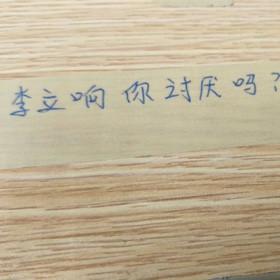 李立响你讨厌吗?